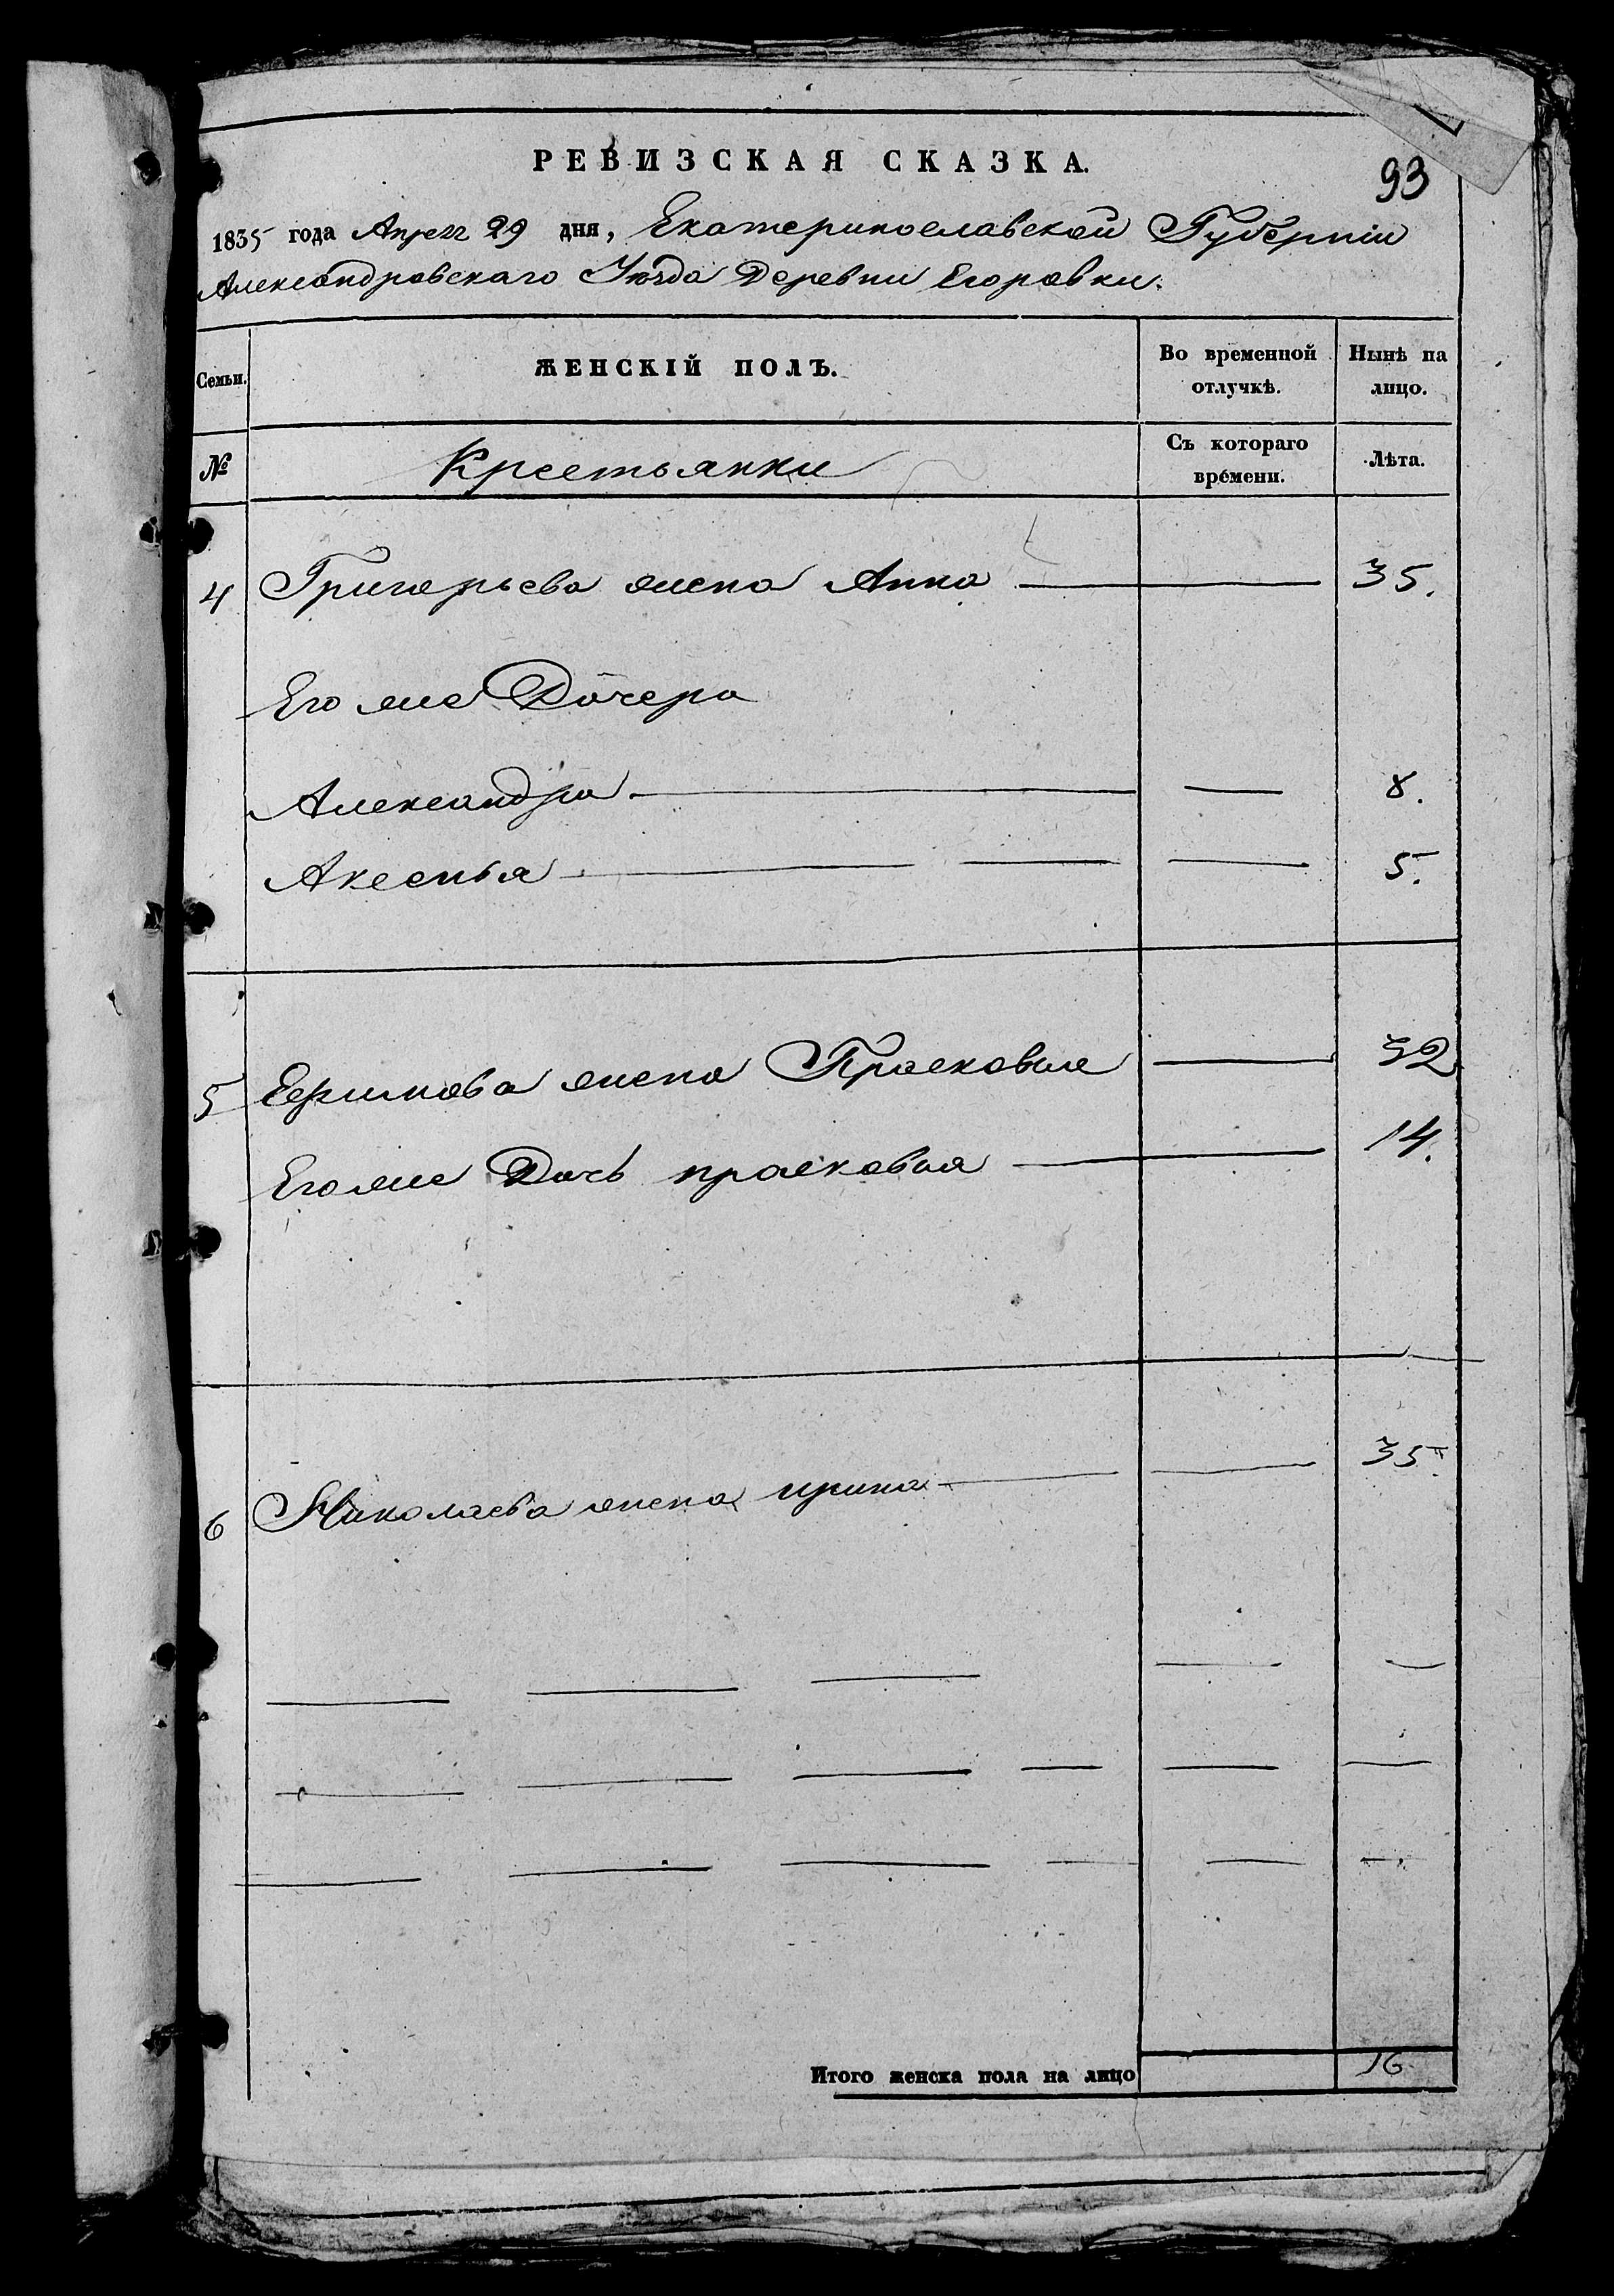 РЕВИЗСКАЯ СКАЗКА.
93
1835 года Апреля 29 дня, Екатеринославской Губерніи
Александровскаго Уезда Деревни Егоровки.
Семьи. ЖЕНСКІЙ ПОЛЪ. Во временной отлучкѣ. Нынѣ на лицо.
№ Крестьянки Съ котораго времени. Лѣта.
4 Григорьева жена Анна 35.
Его же Дочера
Александра 8.
Аксенья 5.
5 Ефимова жена Прасковия 32
Его же Дочь прасковия 14.
6 Николаева жена ирина 35.
Итого женска пола на лицо 16